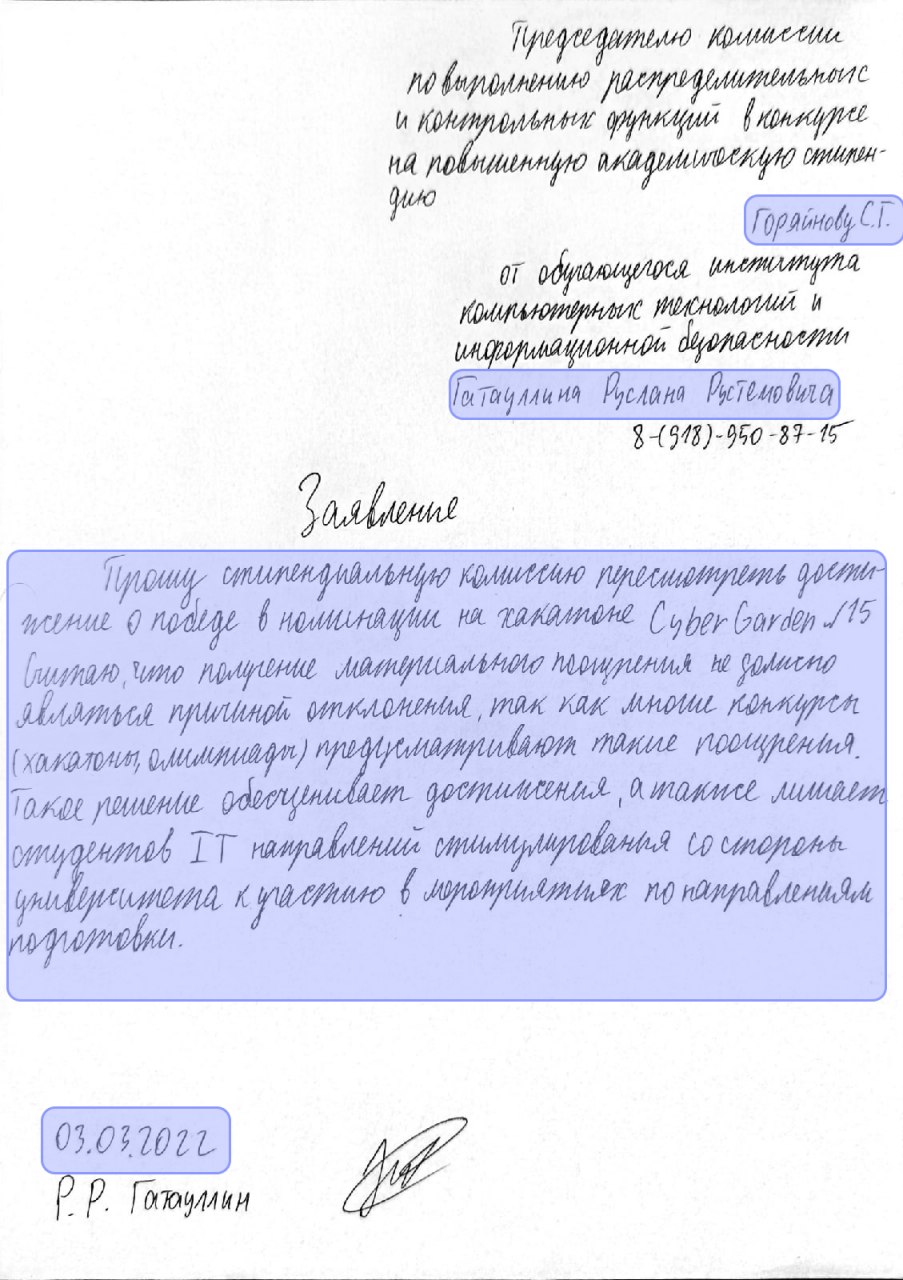 Председателю комиссии
по выполнению распределительных
и контрольных функций в конкурсе
на повышенную академическую стипен-
дию
Горяйнову С.Г.
от обучающегося института
компьютерных технологий и
информационной безопасности
Гатауллина Руслана Рустемовича
8-(918)-950-87-15
Заявление
Прошу стипендиальную комиссию пересмотреть дости-
жение о победе в номинации на хакатоне CyberGarden 15
Считаю, что получение материального поощрения не должно
являться причиной отклонения, так как многие конкурсы
(хакатоны, олимпиады) предусматривают такие поощрения.
Такое решение обесценивает достижения, а также лишает
студентов IT направлений стимулирования со стороны
университета к участию в мероприятиях по направлениям
подготовки.
03.03.2022
Р. Р. Гатауллин